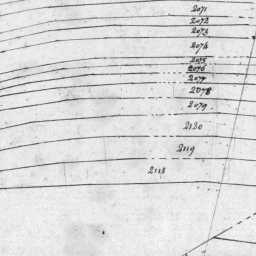 2071
2072
2073
2074
2075
2076
2077
2078
2079
2120
2119
2118